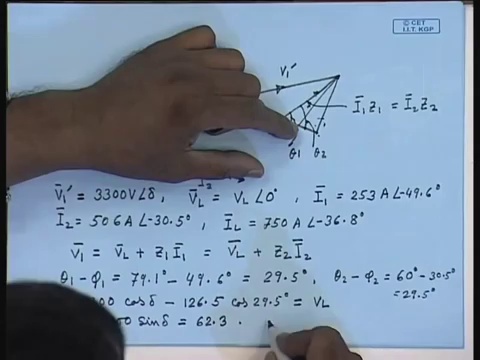 © CET
I.I.T. KGP
V₁′
Ī₁Z₁ = Ī₂Z₂
θ₁ θ₂
V̄₁′ = 3300V∠δ, V̄L = VL∠0°, Ī₁ = 253 A∠-49.6°
Ī₂ = 506 A∠-30.5°, ĪL = 750 A∠-36.8°
V̄₁ = V̄L + Z₁Ī₁ = V̄L + Z₂Ī₂
θ₁-φ₁ = 79.1° - 49.6° = 29.5°, θ₂-φ₂ = 60°-30.5°
= 29.5°
cosδ - 126.5 cos 29.5° = VL
sinδ = 62.3.